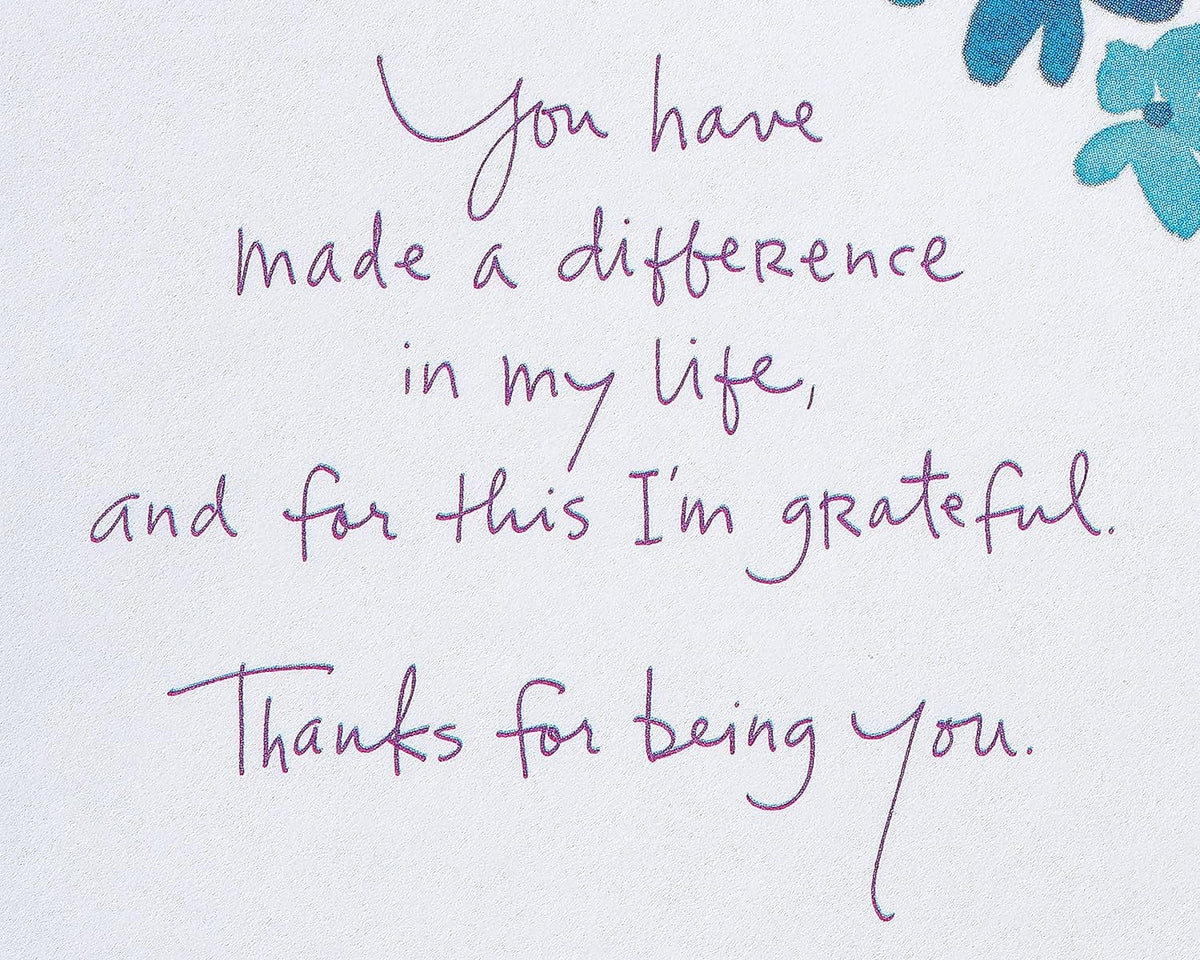 You have
made a difference
in my life,
and for this I'm grateful.
Thanks for being you.